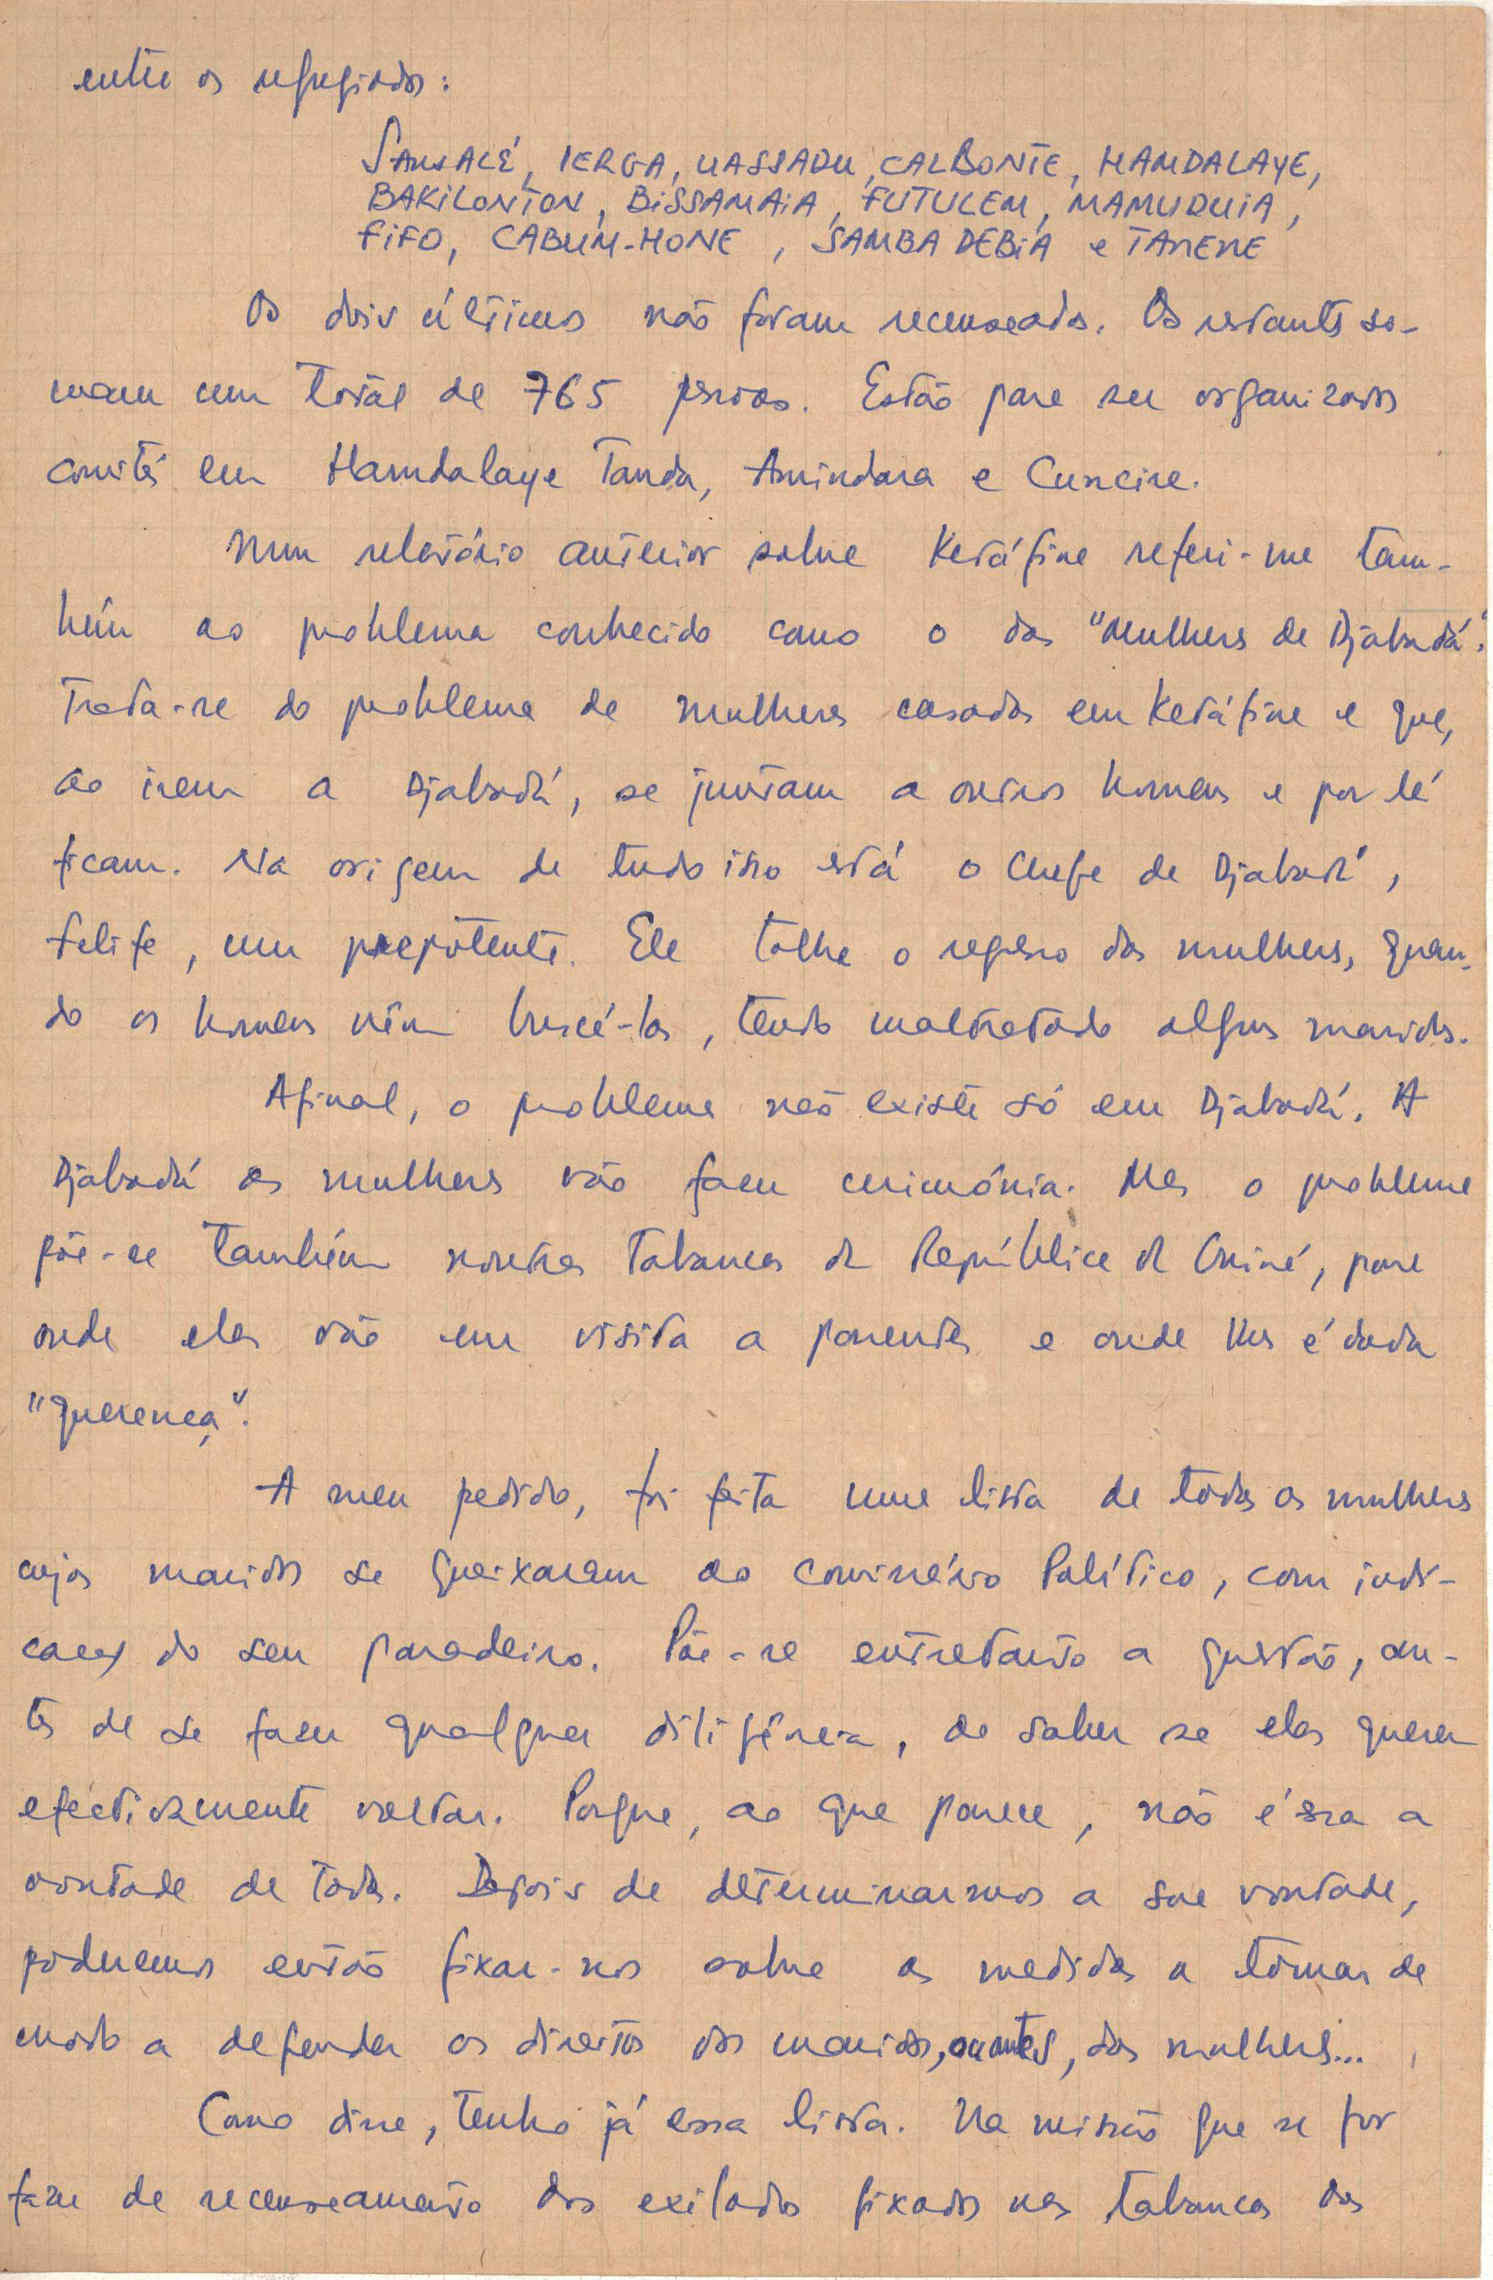 entre os refugiados:
SANSALÉ, IERGA, UASSADU, CALBONTE, HAMDALAYE,
BAKILONTON, BISSAMAIA, FUTULEM, MAMUDUIA,
FIFO, CABUM-HONE, SAMBA DEBIA e TANENE
Os dois últimos não foram recenseados. Os restantes so-
mam um total de 765 pessoas. Estão para ser organizados
comités em Hamdalaye Tanda, Amindara e Cuncire.
Num relatório anterior sobre Ketáfine referi-me tam-
bém ao problema conhecido como o das "Mulheres de Djabadá".
Trata-se do problema de mulheres casadas em Ketáfine e que,
ao irem a Djabadá, se juntam a outros homens e por lá
ficam. Na origem de tudo isso está o Chefe de Djabadá,
Felife, um prepotente. Ele tolhe o regresso das mulheres, quan-
do os homens vêm buscá-las, tendo maltratado alguns maridos.
Afinal, o problema não existe só em Djabadá. A
Djabadá as mulheres vão fazer cerimónia. Mas o problema
põe-se também noutras tabancas da República da Guiné, para
onde elas vão em visita a parentes e onde lhes é dada
"querença".
A meu pedido, foi feita uma lista de todas as mulheres
cujos maridos se queixaram ao Comissário Político, com indi-
cação do seu paradeiro. Põe-se entretanto a questão, an-
tes de se fazer qualquer diligência, de saber se elas querem
efectivamente voltar. Porque, ao que parece, não é essa a
vontade de todas. Depois de determinarmos a sua vontade,
poderemos então fixar-nos sobre as medidas a tomar de
modo a defender os direitos dos maridos, ou antes, das mulheres...
Como disse, tenho já essa lista. Na missão que se for
fazer de recenseamento dos exilados fixados nas tabancas das